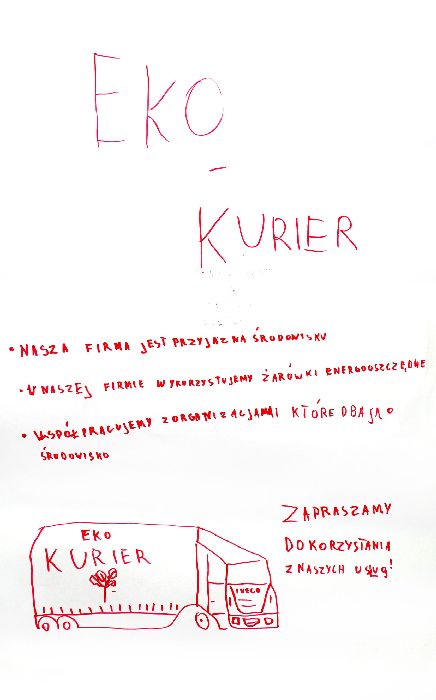 EKO
-
KURIER
• NASZA FIRMA JEST PRZYJAZNA ŚRODOWISKU
• W NASZEJ FIRMIE WYKORZYSTUJEMY ŻARÓWKI ENERGOOSZCZĘDNE
• WSPÓŁPRACUJEMY Z ORGANIZACJAMI KTÓRE DBAJĄ O
ŚRODOWISKO
EKO
KURIER
IVECO
ZAPRASZAMY
DO KORZYSTANIA
Z NASZYCH USŁUG!